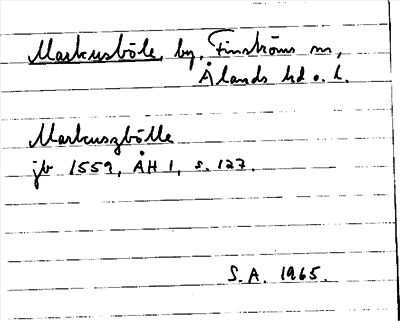 Markusböle, by, Finströms sn,
Ålands hd o. l.
Markuszbölle
jb 1559, ÅH 1, s. 127.
S.A. 1965.